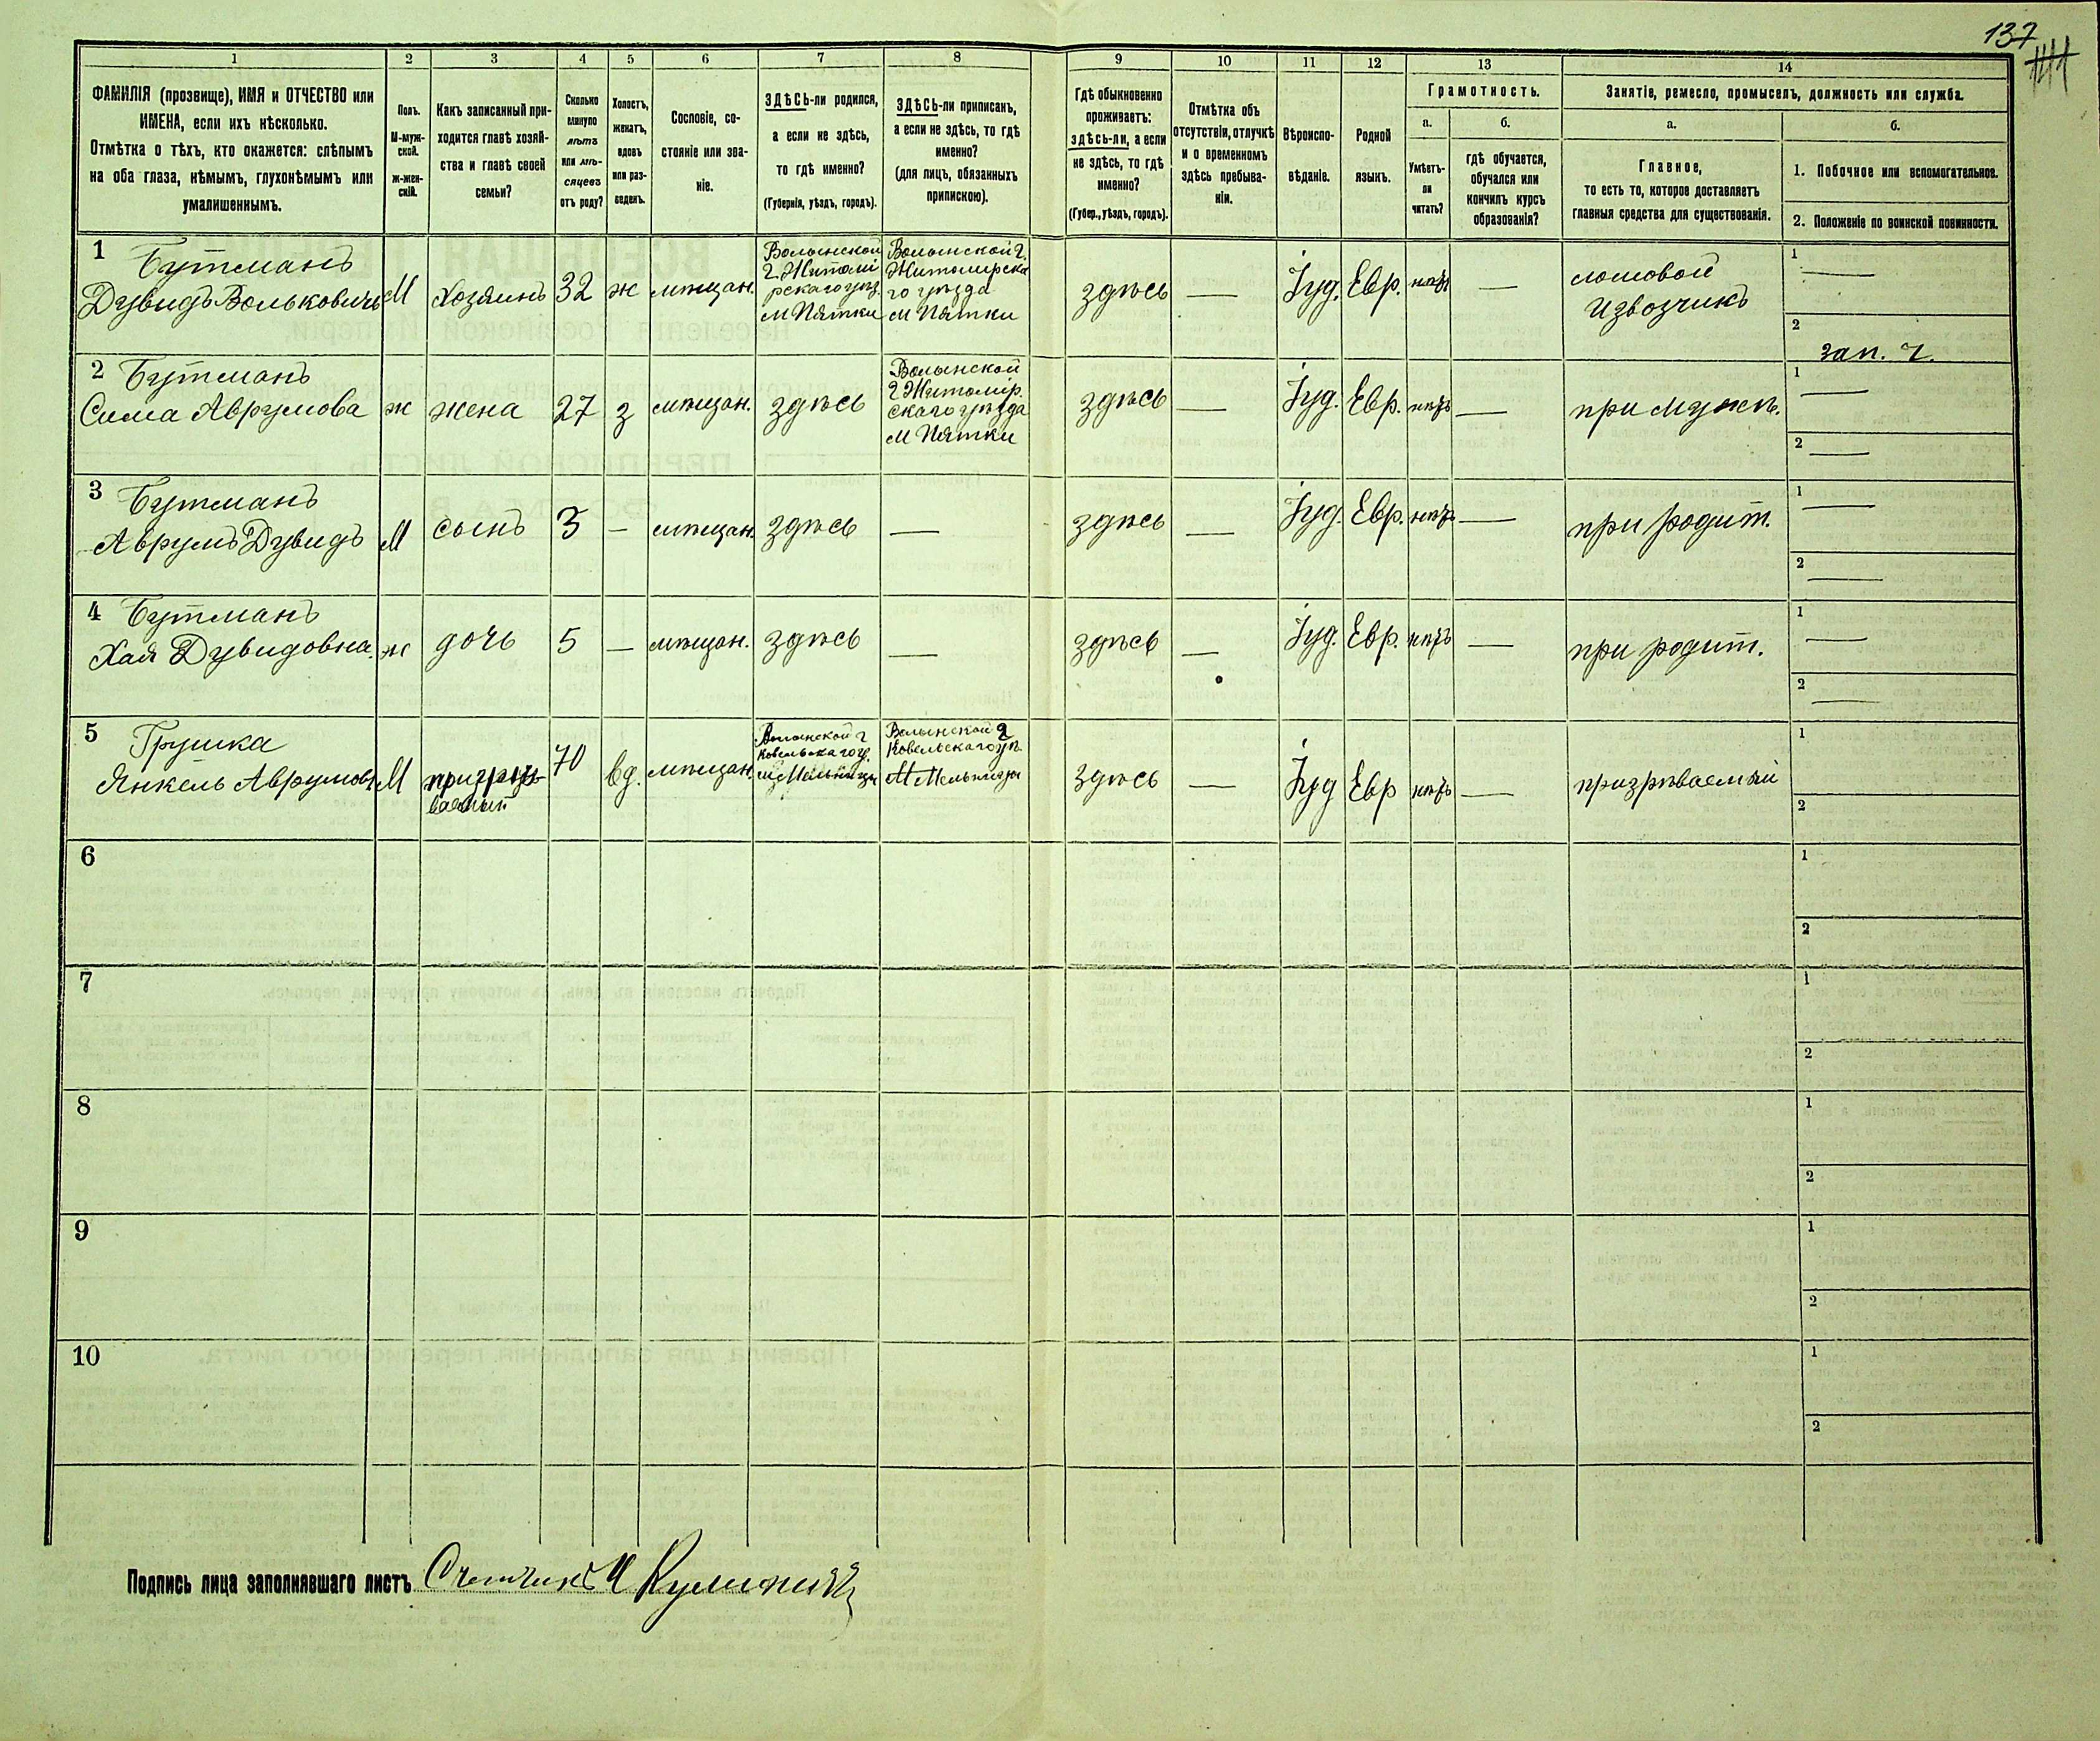 137
141
1 2 3 4 5 6 7 8 9 10 11 12 13 14
ФАМИЛІЯ (прозвище), ИМЯ и ОТЧЕСТВО или
ИМЕНА, если ихъ нѣсколько.
Отмѣтка о тѣхъ, кто окажется: слѣпымъ
на оба глаза, нѣмымъ, глухонѣмымъ или
умалишеннымъ.
Полъ.
М-муж-
ской.
ж-жен-
скій.
Какъ записанный при-
ходится главѣ хозяй-
ства и главѣ своей
семьи?
Сколько
минуло
лѣтъ
или мѣ-
сяцевъ
отъ роду?
Холостъ,
женатъ,
вдовъ
или раз-
веденъ.
Сословіе, со-
стояніе или зва-
ніе.
ЗДѢСЬ-ли родился,
а если не здѣсь,
то гдѣ именно?
(Губернія, уѣздъ, городъ).
ЗДѢСЬ-ли приписанъ,
а если не здѣсь, то гдѣ
именно?
(для лицъ, обязанныхъ
припискою).
Гдѣ обыкновенно
проживаетъ:
здѣсь-ли, а если
не здѣсь, то гдѣ
именно?
(Губер., уѣздъ, городъ).
Отмѣтка объ
отсутствіи, отлучкѣ
и о временномъ
здѣсь пребыва-
ніи.
Вѣроиспо-
вѣданіе.
Родной
языкъ.
Грамотность.
а.
Умѣетъ-
ли
читать?
б.
гдѣ обучается,
обучался или
кончилъ курсъ
образованія?
Занятіе, ремесло, промыселъ, должность или служба.
а.
Главное,
то есть то, которое доставляетъ
главныя средства для существованія.
б.
1. Побочное или вспомогательное.
2. Положеніе по воинской повинности.
1
Бутманъ
Дувидъ Вольковичъ
М
хозяинъ
32
ж
мѣщан.
Волынской
г. Житомі
рскаго уѣз.
м Пятки
Волынской г.
Житомирска
го уѣзда
м Пятки
здѣсь
—
Іуд.
Евр.
нѣтъ
—
ломовой
извозчикъ
1 —
2
зап. г.
2
Бутманъ
Сима Аврумова
ж
жена
27
з
мѣщан.
здѣсь
Волынской
г Житомір
скаго уѣзда
м Пятки
здѣсь
—
Іуд.
Евр.
нѣтъ
—
при мужѣ.
1 —
2 —
3
Бутманъ
Аврумъ Дувидъ
М
сынъ
3
—
мѣщан.
здѣсь
—
здѣсь
—
Іуд.
Евр.
нѣтъ
—
при родит.
1 —
2 —
4
Бутманъ
Хая Дувидовна.
ж
дочь
5
—
мѣщан.
здѣсь
—
здѣсь
—
Іуд.
Евр.
нѣтъ
—
при родит.
1 —
2 —
5
Грушка
Янкель Аврумов
М
призрѣ-
ваемый
70
вд.
мѣщан.
Волынской г
Ковельскаго у.
м Мельницы
Волынской г
Ковельскаго уѣ.
М Мельницы
здѣсь
—
Іуд
Евр
нѣтъ
—
призрѣваемый
1
2
6
1
2
7
1
2
8
1
2
9
1
2
10
1
2
Подпись лица заполнявшаго листъ Счетчикъ